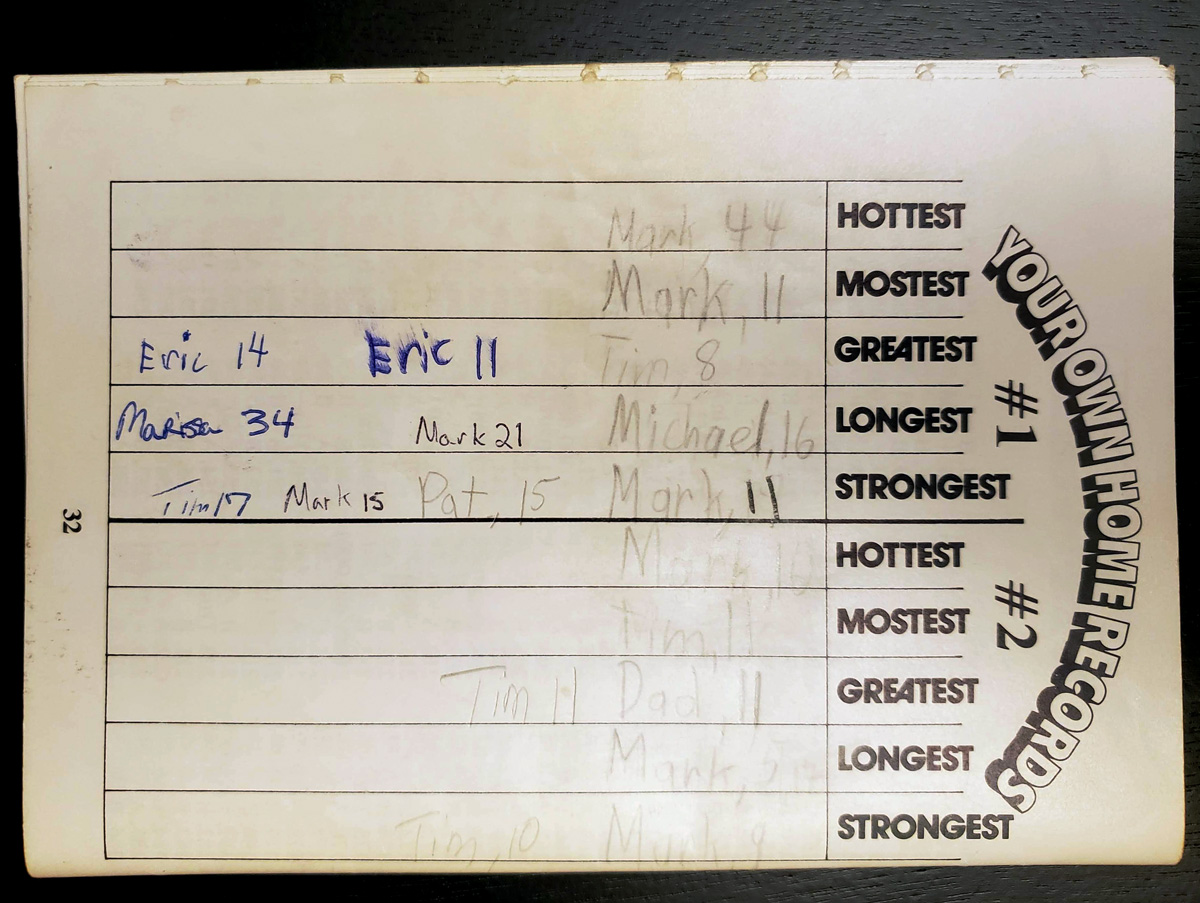 YOUR OWN HOME RECORDS
#1
Mark, 44 HOTTEST
Mark, 11 MOSTEST
Eric 14 Eric 11 Tim, 8 GREATEST
Marisa 34 Mark 21 Michael, 16 LONGEST
Tim 17 Mark 15 Pat, 15 Mark, 11 STRONGEST
#2
Mark, 10 HOTTEST
Tim, 11 MOSTEST
Tim 11 Dad, 11 GREATEST
Mark, LONGEST
Tim, 10 Mark, 9 STRONGEST
32